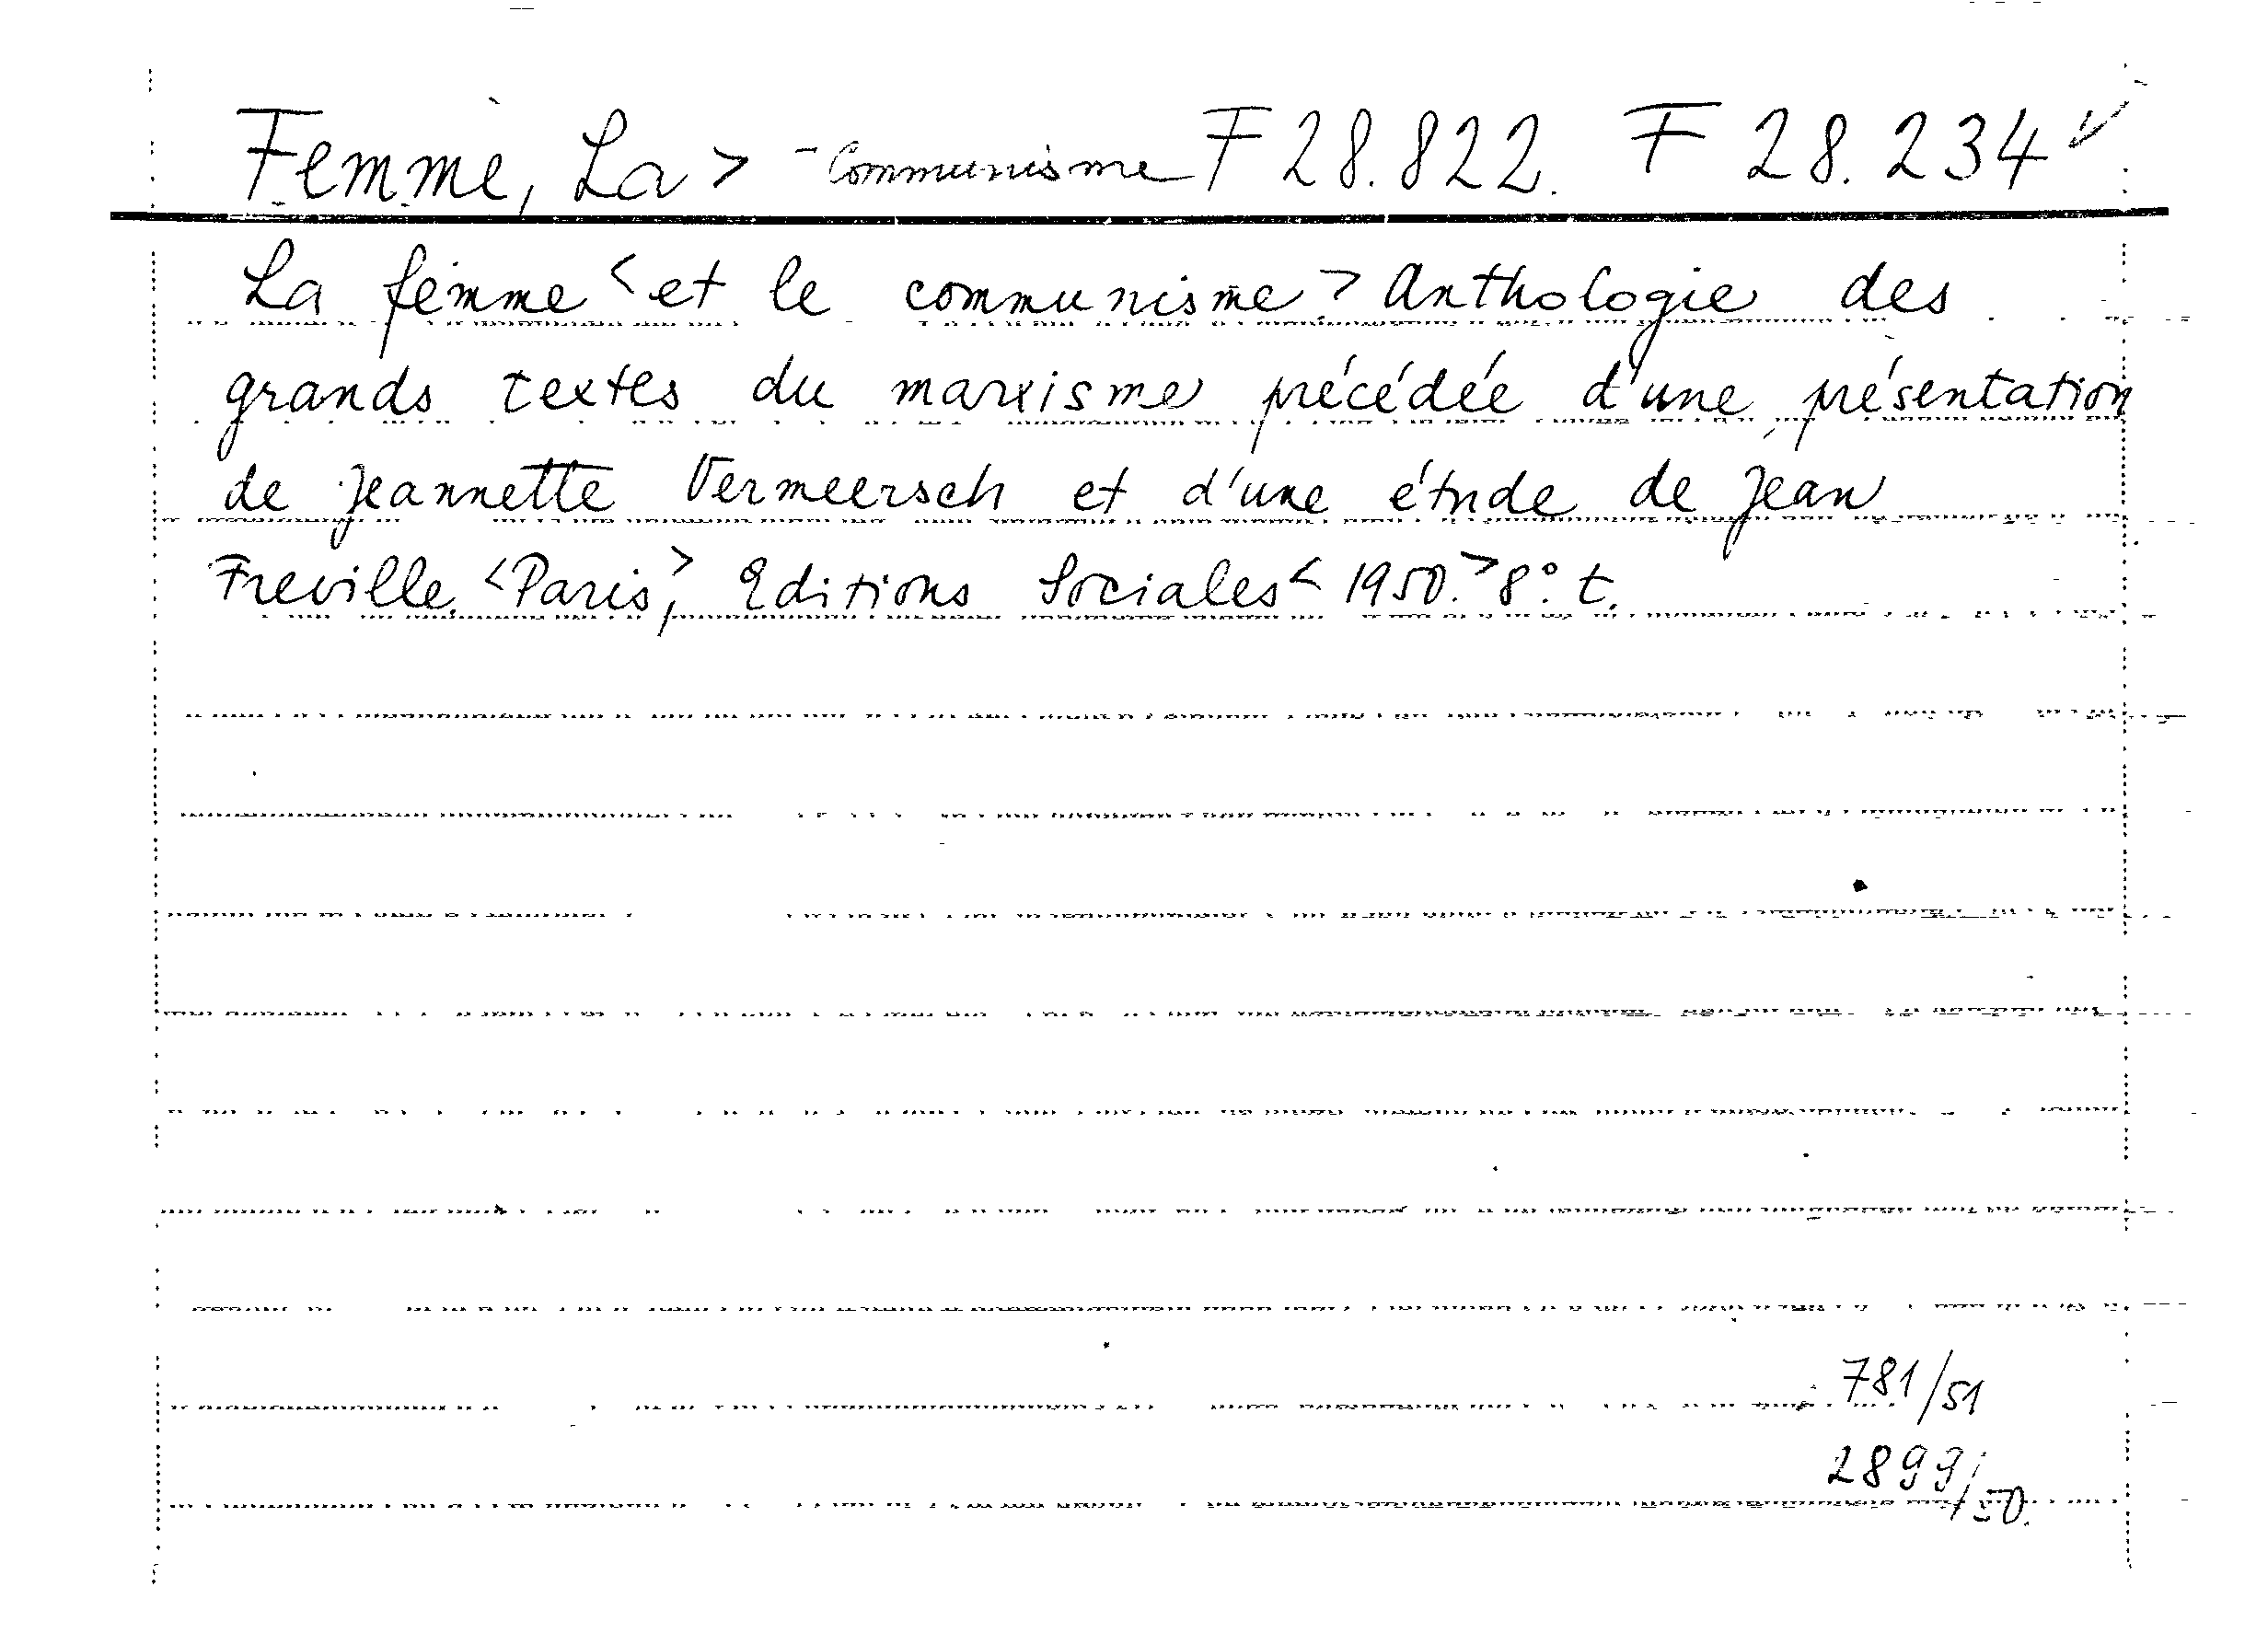 Femme, La > - Communisme F 28.822. F 28.234 ✓
La femme < et le communisme > Anthologie des
grands textes du marxisme précédée d'une présentation
de Jeannette Vermeersch et d'une étude de Jean
Freville. <Paris,> Editions Sociales < 1950. > 8°. t.
781/51
2899/50.